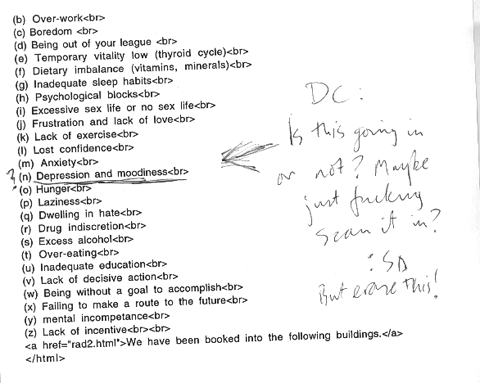 (b) Over-work<br>
(c) Boredom <br>
(d) Being out of your league <br>
(e) Temporary vitality low (thyroid cycle)<br>
(f) Dietary imbalance (vitamins, minerals)<br>
(g) Inadequate sleep habits<br>
(h) Psychological blocks<br>
(i) Excessive sex life or no sex life<br>
(j) Frustration and lack of love<br>
(k) Lack of exercise<br>
(l) Lost confidence<br>
(m) Anxiety<br>
? (n) Depression and moodiness<br>
(o) Hunger<br>
(p) Laziness<br>
(q) Dwelling in hate<br>
(r) Drug indiscretion<br>
(s) Excess alcohol<br>
(t) Over-eating<br>
(u) Inadequate education<br>
(v) Lack of decisive action<br>
(w) Being without a goal to accomplish<br>
(x) Failing to make a route to the future<br>
(y) mental incompetance<br>
(z) Lack of incentive<br><br>
<a href="rad2.html">We have been booked into the following buildings.</a>
</html>
DC:
Is this going in
or not? Maybe
just fucking
scan it in?
: SD
But erase this!